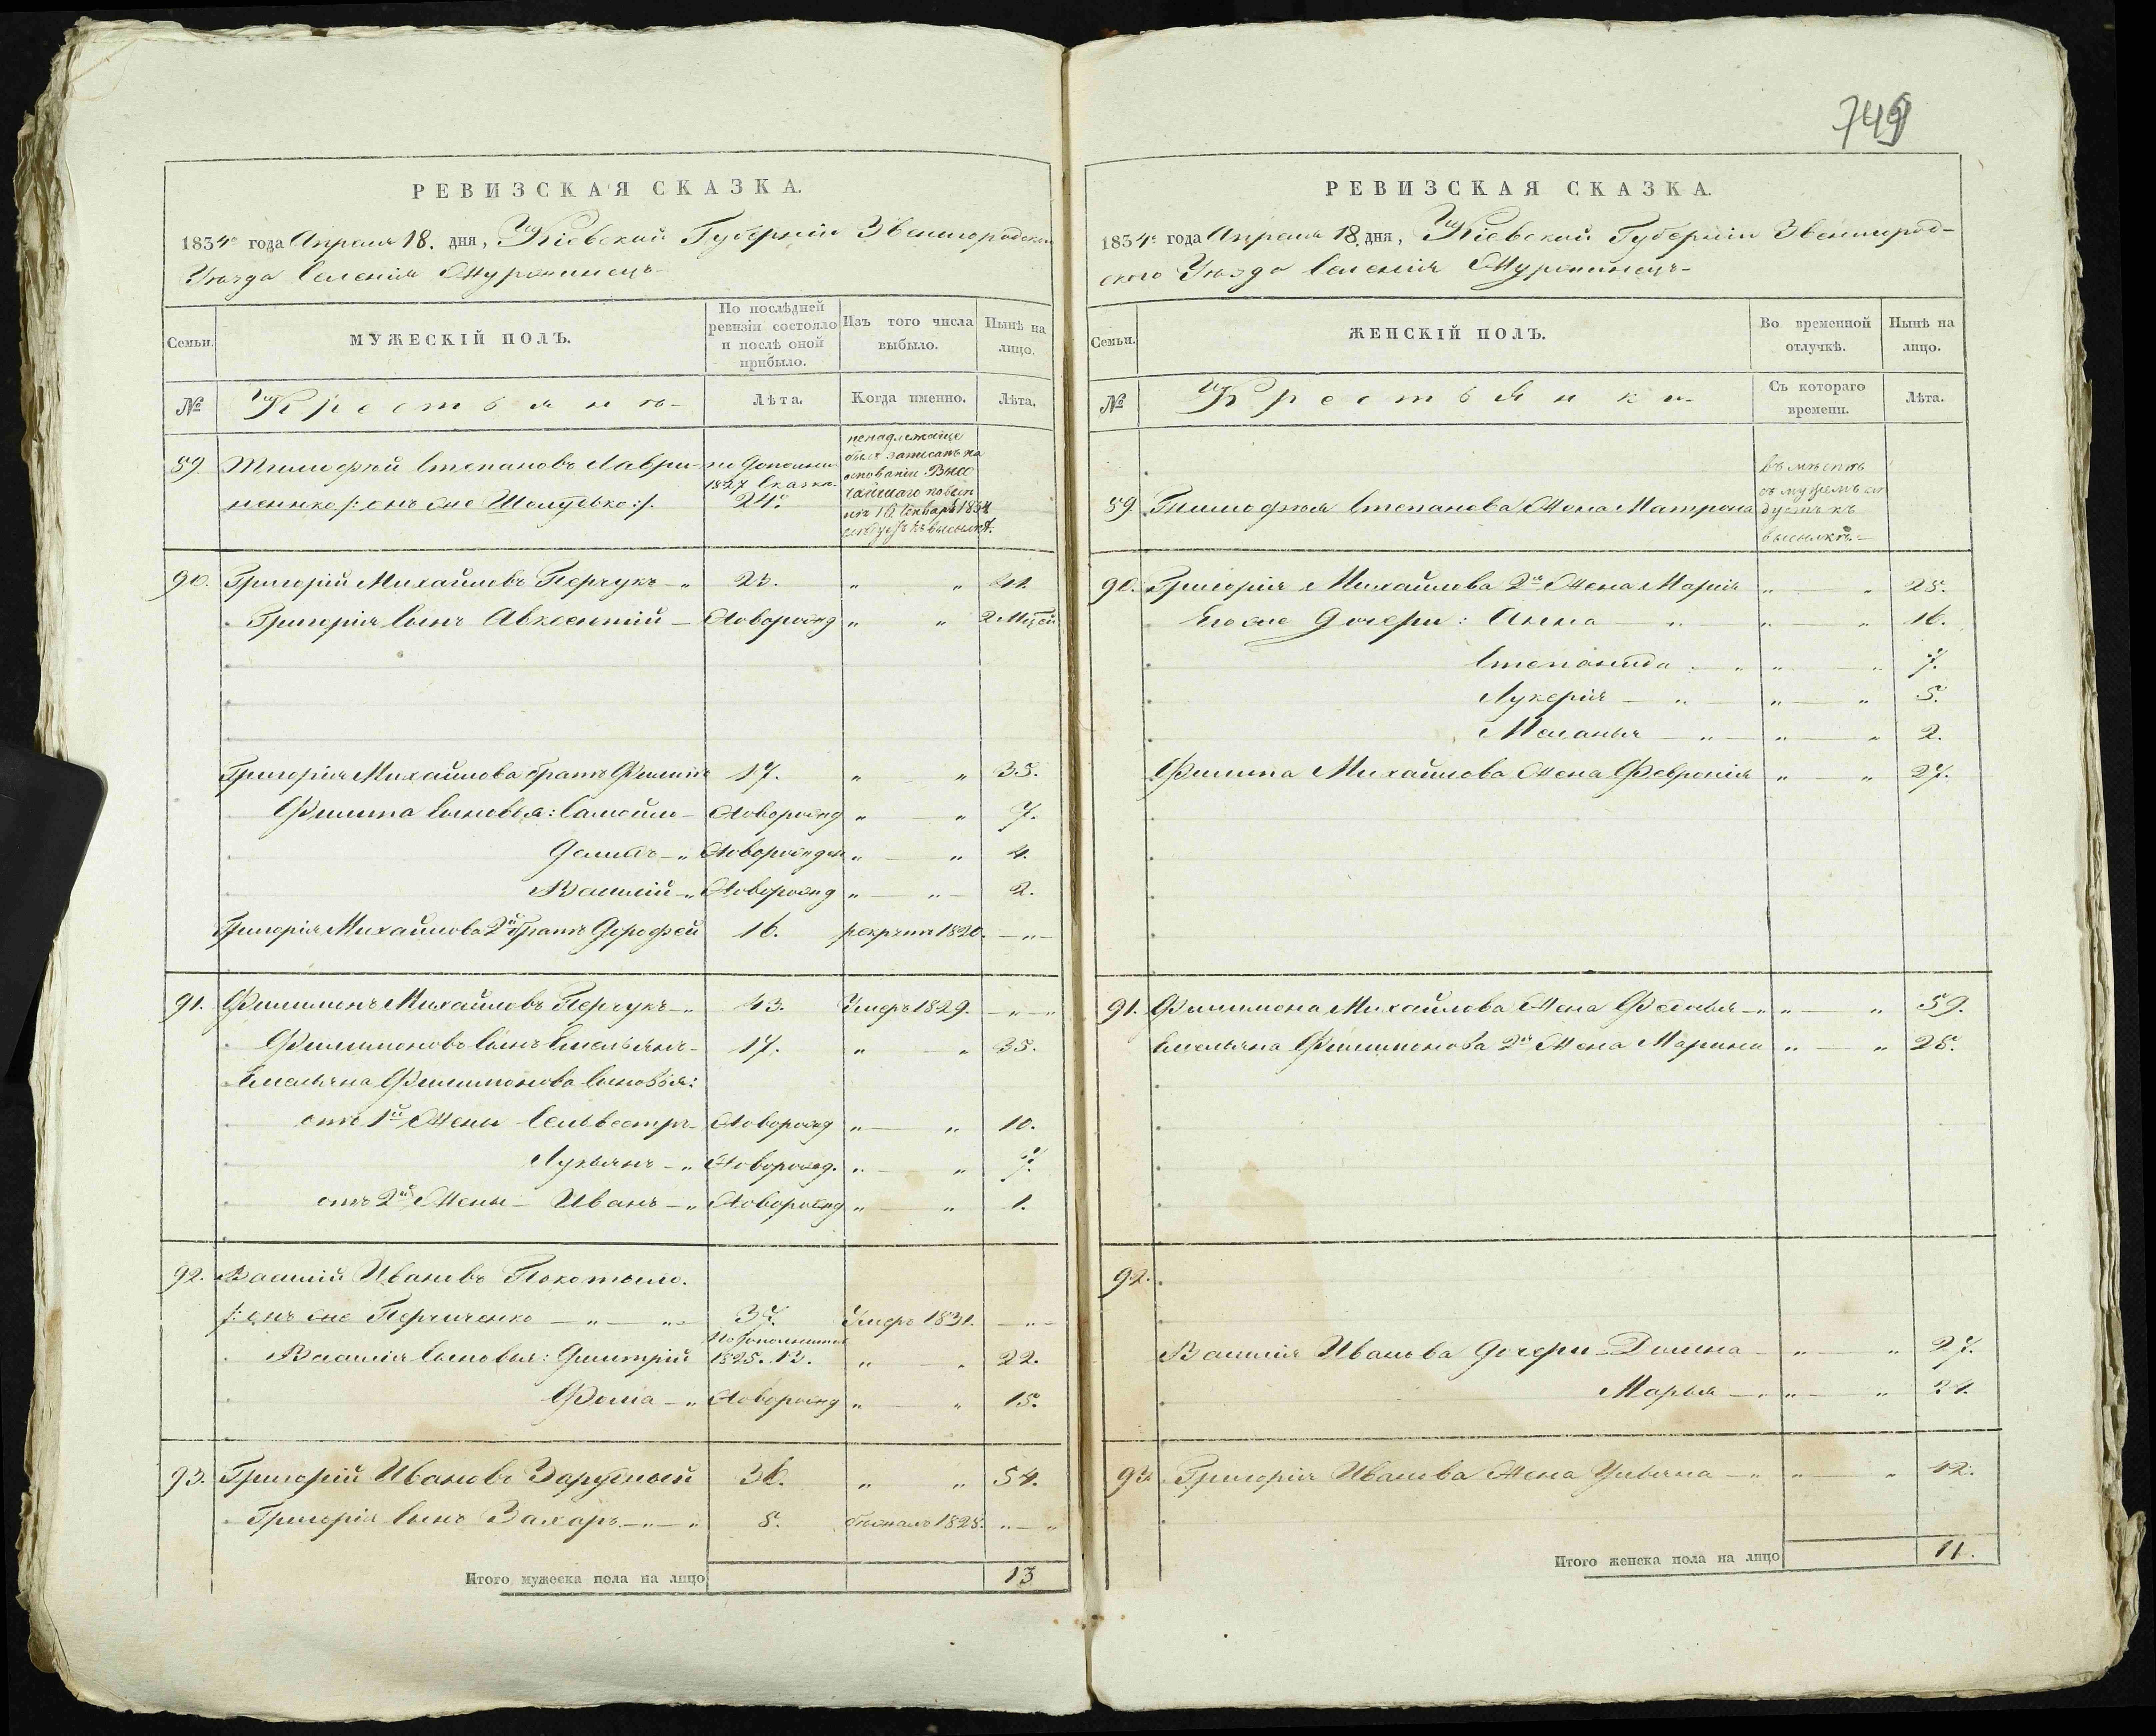 749
РЕВИЗСКАЯ СКАЗКА.
1834го года Апреля 18. дня, Кіевской Губерніи Звенигородского
Уѣзда Селенія Журжинецъ
Семьи.
МУЖЕСКІЙ ПОЛЪ.
По послѣдней ревизіи состояло и послѣ оной прибыло.
Изъ того числа выбыло.
Нынѣ на лицо.
№
Крестьянъ
Лѣта.
Когда именно.
Лѣта.
89 Тимофей Степановъ Лаври- по дополнит
ненко /: онъ же Шолудько :/. 1827 Сказкѣ 24.
ненадлежаще
былъ записанъ на
основаніи Высо
чайшаго повел
слѣдуетъ къ высылкѣ.
90. Григорій Михайловъ Перчукъ — „ 23. „ „ 41
Григорія сынъ Авксентій — Новорожд „ „ 2 Мѣся
Григорія Михайлова братъ Филипъ 17. „ „ 35.
Филипа сыновья: Самойло — Новорожд „ „ 7.
Данило — „ Новорожден „ „ 4.
Василій — „ Новорожд „ „ 2.
Григорія Михайлова 2й братъ Дорофей 16. рекрутъ 1820. — „ —
91. Филимонъ Михайловъ Перчукъ — „ 43. Умеръ 1829. — „ — „
Филимоновъ сынъ Емельянъ — 17. „ „ 35.
Емельяна Филимонова сыновья:
отъ 1й Жены Сельвестръ — Новорожд „ — „ 10.
Лукьянъ — „ Новорожд. „ — „ 7.
отъ 2й Жены — Иванъ — „ Новорожд „ — „ 1.
92. Василій Ивановъ Покотыло.
/: онъ же Перчиченко — „ — „ 37. Умеръ 1831. — „ —
Василія сыновья: Дмитрій По дополнител 1825. 13. „ „ 22.
Фома — „ Новорожд „ — „ 15.
93. Григорій Ивановъ Зарубный 36. „ „ 54.
Григорія сынъ Захаръ — „ — „ 8. бѣжалъ 1825. „ — „
Итого мужеска пола на лицо 13
РЕВИЗСКАЯ СКАЗКА.
1834го года Апреля 18. дня, Кіевской Губерніи Звенигород-
ского Уѣзда Селенія Журжинецъ
Семьи.
ЖЕНСКІЙ ПОЛЪ.
Во временной отлучкѣ.
Нынѣ на лицо.
№
Крестьянки
Съ котораго времени.
Лѣта.
89. Тимофея Степанова Жена Матрона
въмѣстѣ
съ мужемъ слѣ
дуетъ къ
высылкѣ. —
90. Григорія Михайлова 2я Жена Марія „ — „ 25.
Его же дочери: Анна — „ „ — „ 16.
Степанида — „ „ — „ 7.
Лукерія — „ „ — „ 5.
Меланья — „ — „ — „ 2.
Филипа Михайлова Жена Февронія „ — „ 27.
91. Филимона Михайлова Жена Федосья — „ „ — „ 59.
Емельяна Филимонова 2я Жена Марина „ — „ 25.
92.
Василія Иванова дочери — Домна — „ — „ 27.
Марья — „ — „ 24.
93. Григорія Иванова Жена Ульяна — „ — „ 42.
Итого женска пола на лицо 11.